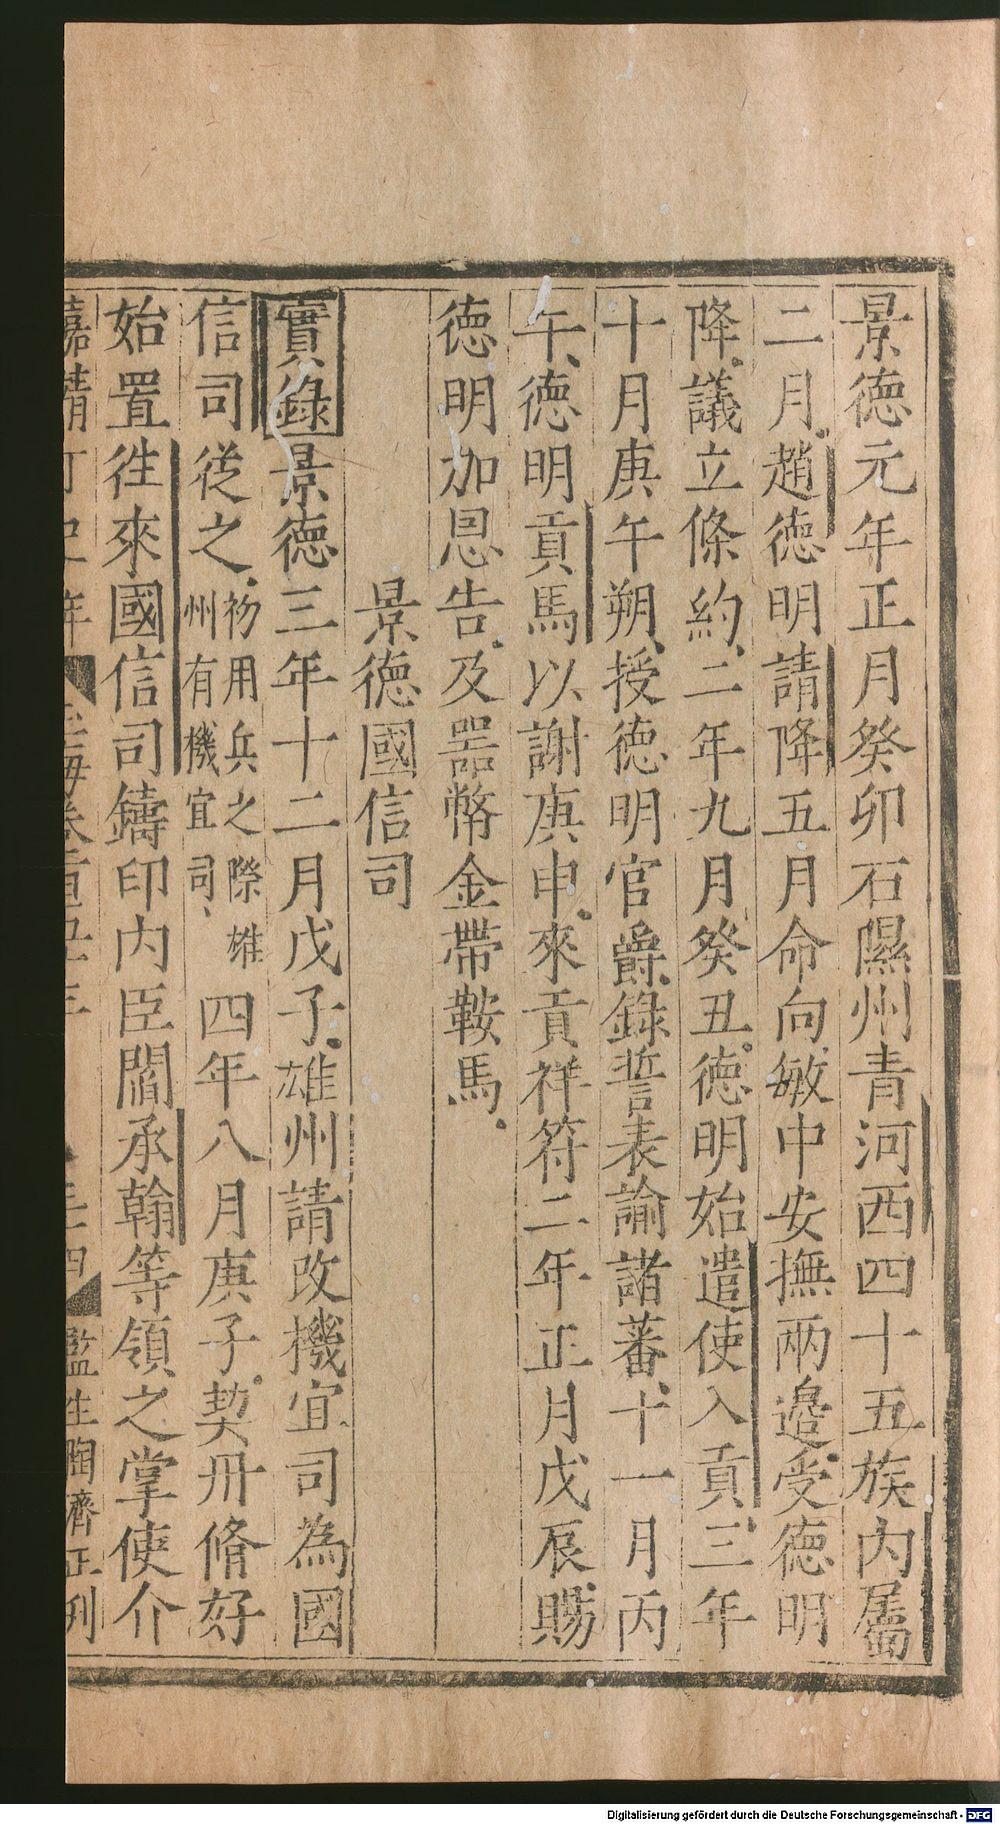 景徳元年正月癸卯石隰州青河西四十五族内屬
二月趙徳明請降五月命向敏中安撫兩邉受徳明
降議立條約二年九月癸丑徳明始遣使入貢三年
十月庚午朔授徳明官爵錄誓表諭諸蕃十一月丙
午徳明貢馬以謝庚申來貢祥符二年正月戊辰賜
徳明加恩告及器幣金帶鞍馬
景徳國信司
實錄景徳三年十二月戊子雄州請改機宜司為國
信司從之初用兵之際雄州有機宜司四年八月庚子契丹脩好
始置徃來國信司鑄印内臣閻承翰等領之掌使介
嘉靖丁 年
監生陶濟正刋
Digitalisierung gefördert durch die Deutsche Forschungsgemeinschaft - DFG